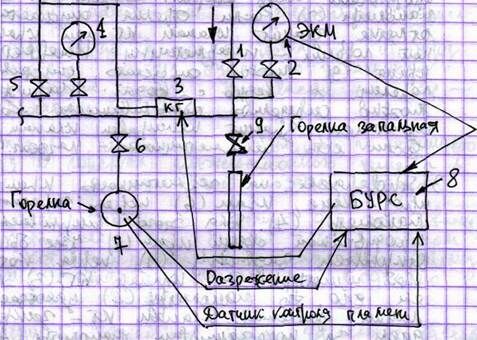 4
ЭКМ
1
2
3
5
КГ
9
Горелка запальная
6
БУРС
8
Горелка
7
Разрежение
Датчик контроля пламени